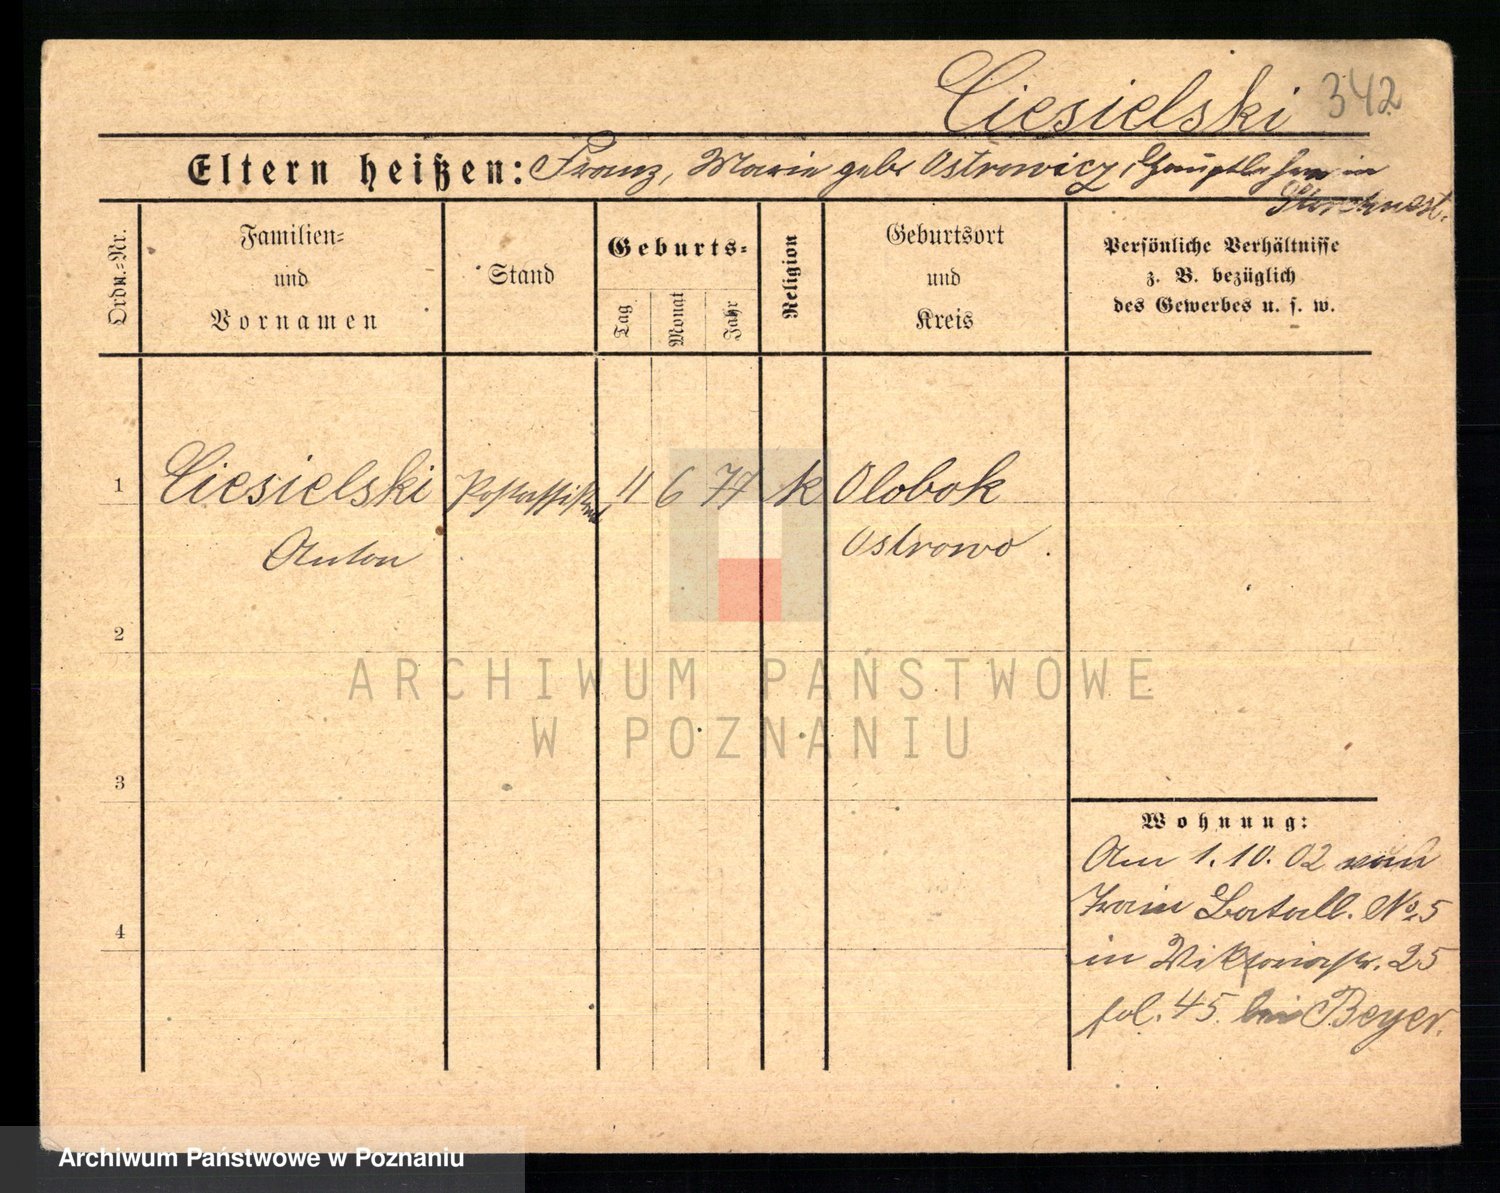 Ciesielski 342
Eltern heißen: Franz, Marie geb. Ostrowicz, Hauptlehrer in
Storchnest.
Ordn.-Nr.
Familien-
und
Vornamen
Stand
Geburts-
Tag
Monat
Jahr
Religion
Geburtsort
und
Kreis
Persönliche Verhältnisse
z. B. bezüglich
des Gewerbes u. s. w.
1 Ciesielski Postassistent 11 6 77 k Olobok
Anton Ostrowo
2
3
4
Wohnung:
Am 1. 10. 02 vom
Train Batall. No. 5
in Viktoriastr. 25
fol. 45 bei Beyer.
ARCHIWUM PAŃSTWOWE
W POZNANIU
Archiwum Państwowe w Poznaniu